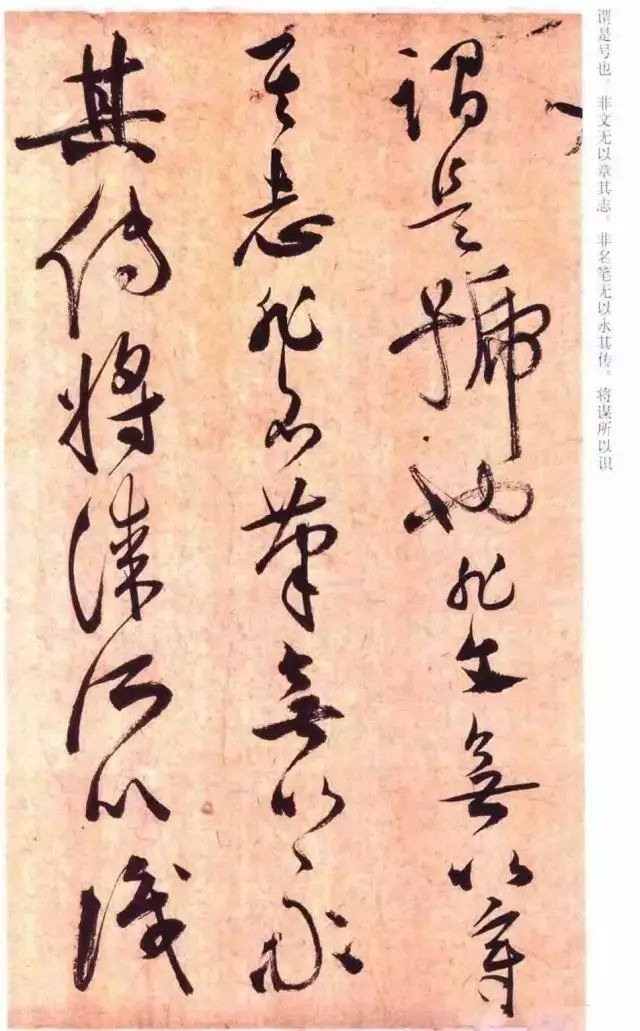 谓是号也。非文无以章其志。非名笔无以永其传。将谋所以识
谓是號也非文無以章
其志非名筆無以永
其傳將謀所以識